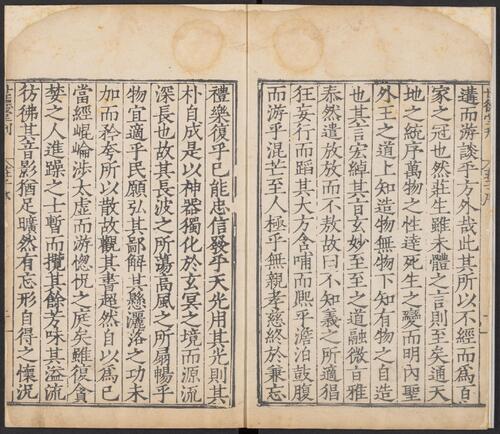 遘而游談乎方外哉此其所以不經而為百
家之冠也然莊生雖未體之言則至矣通天
地之統序萬物之性達死生之變而明內聖
外王之道上知造物無物下知有物之自造
也其言宏綽其旨玄妙至至之道融微旨雅
泰然遣放放而不敖故曰不知義之所適猖
狂妄行而蹈其大方含哺而熈乎澹泊鼓腹
而游乎混芒至人極乎無親孝慈終於兼忘
禮樂復乎已能忠信發乎天光用其光則其
朴自成是以神器獨化於玄冥之境而源流
深長也故其長波之所蕩高風之所扇暢乎
物宜適乎民願弘其鄙解其懸灑落之功未
加而矜夸所以散故觀其書超然自以為已
當經崐崘涉太虛而游惚怳之庭矣雖復貪
婪之人進躁之士暫而攬其餘芳味其溢流
彷彿其音影猶足曠然有忘形自得之懷況